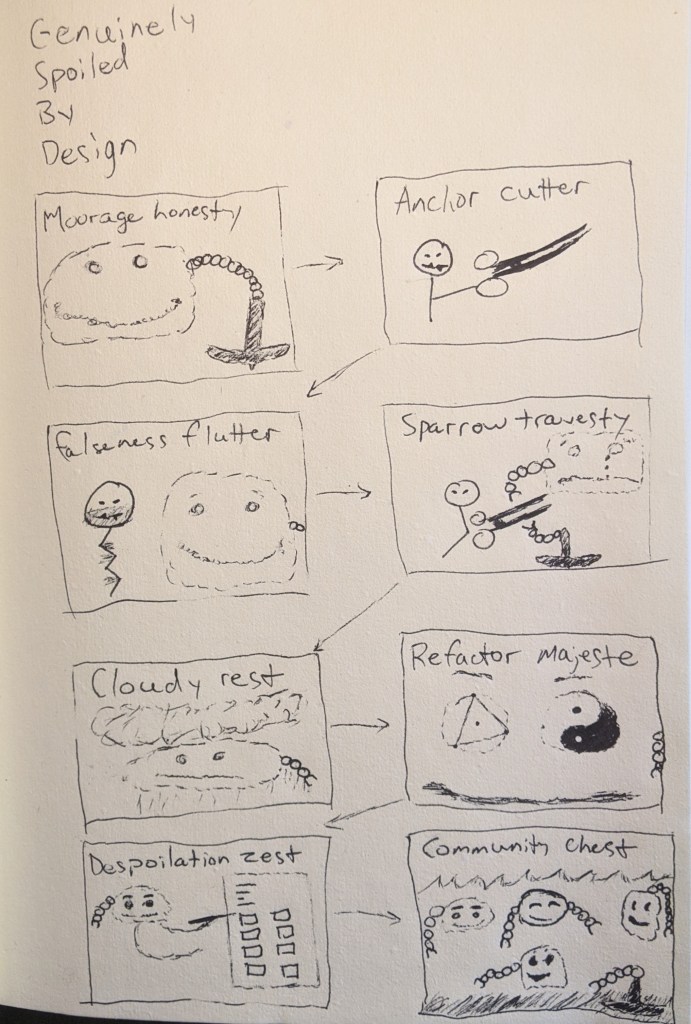 Genuinely
Spoiled
By
Design
Moorage honesty
Anchor cutter
Falseness flutter
Sparrow travesty
Cloudy rest
Refactor Majeste
Despoilation zest
Community chest